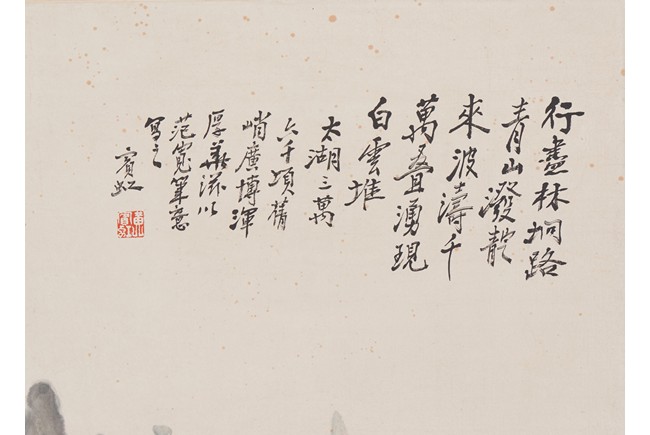 行盡林坰路
青山潑靛
來波濤千
萬疊湧現
白雲堆
太湖三萬
六千頃蒨
峭廣博渾
厚華滋以
范寬筆意
寫之
賓虹